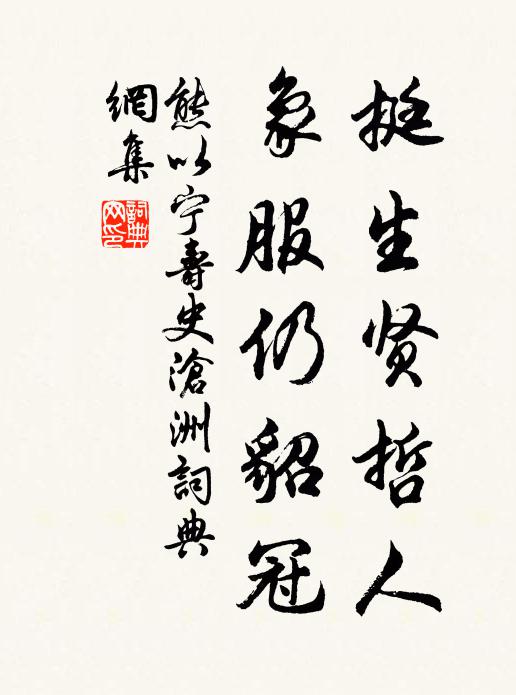 挺生贤哲人
象服仍貂冠
熊以宁寿史沧洲詞典
網集
詞典網印